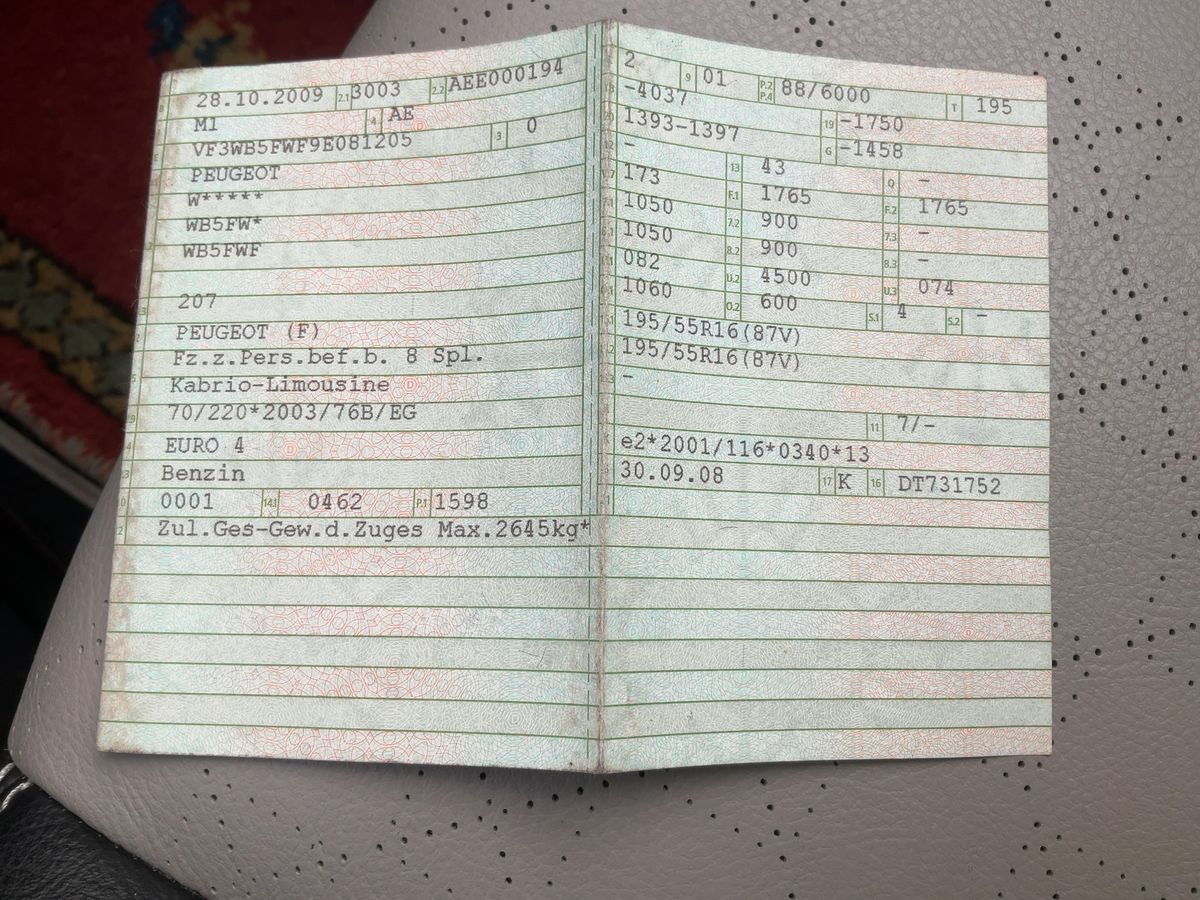 28.10.2009 2.1 3003 2.2 AEE000194
M1 4 AE
VF3WB5FWF9E081205 3 0
PEUGEOT
W*****
WB5FW*
WB5FWF
207
PEUGEOT (F)
Fz.z.Pers.bef.b. 8 Spl.
Kabrio-Limousine
70/220*2003/76B/EG
EURO 4
Benzin
0001 14.1 0462 P.1 1598
Zul.Ges-Gew.d.Zuges Max.2645kg*
2 9 01 P.2 P.4 88/6000 T 195
-4037 19 -1750
1393-1397 G -1458
- 13 43 Q -
173 F.1 1765 F.2 1765
1050 7.2 900 7.3 -
1050 8.2 900 8.3 -
082 U.2 4500 U.3 074
1060 O.2 600 S.1 4 S.2 -
195/55R16(87V)
195/55R16(87V)
-
11 7/-
e2*2001/116*0340*13
30.09.08 17 K 16 DT731752